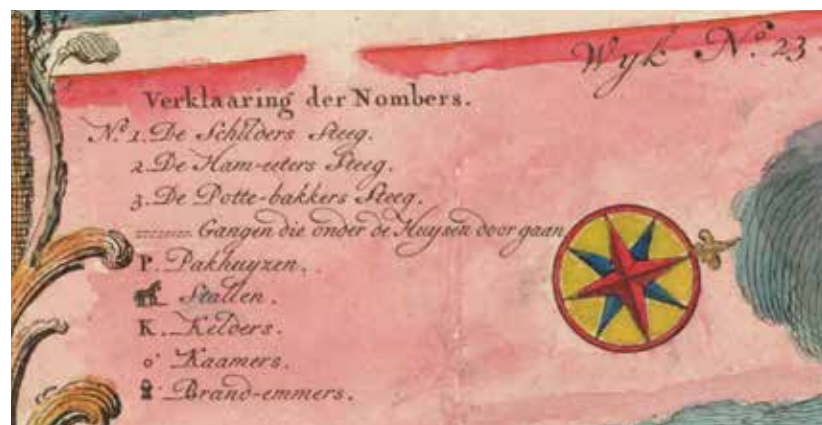 Wyk No. 23.
Verklaaring der Nombers.
No. 1. De Schilders Steeg.
2. De Ham-eeters Steeg.
3. De Potte-bakkers Steeg.
Gangen die onder de Huysen door gaan
P. Pakhuyzen.
Stallen.
K. Kelders.
o. Kaamers.
Brand-emmers.